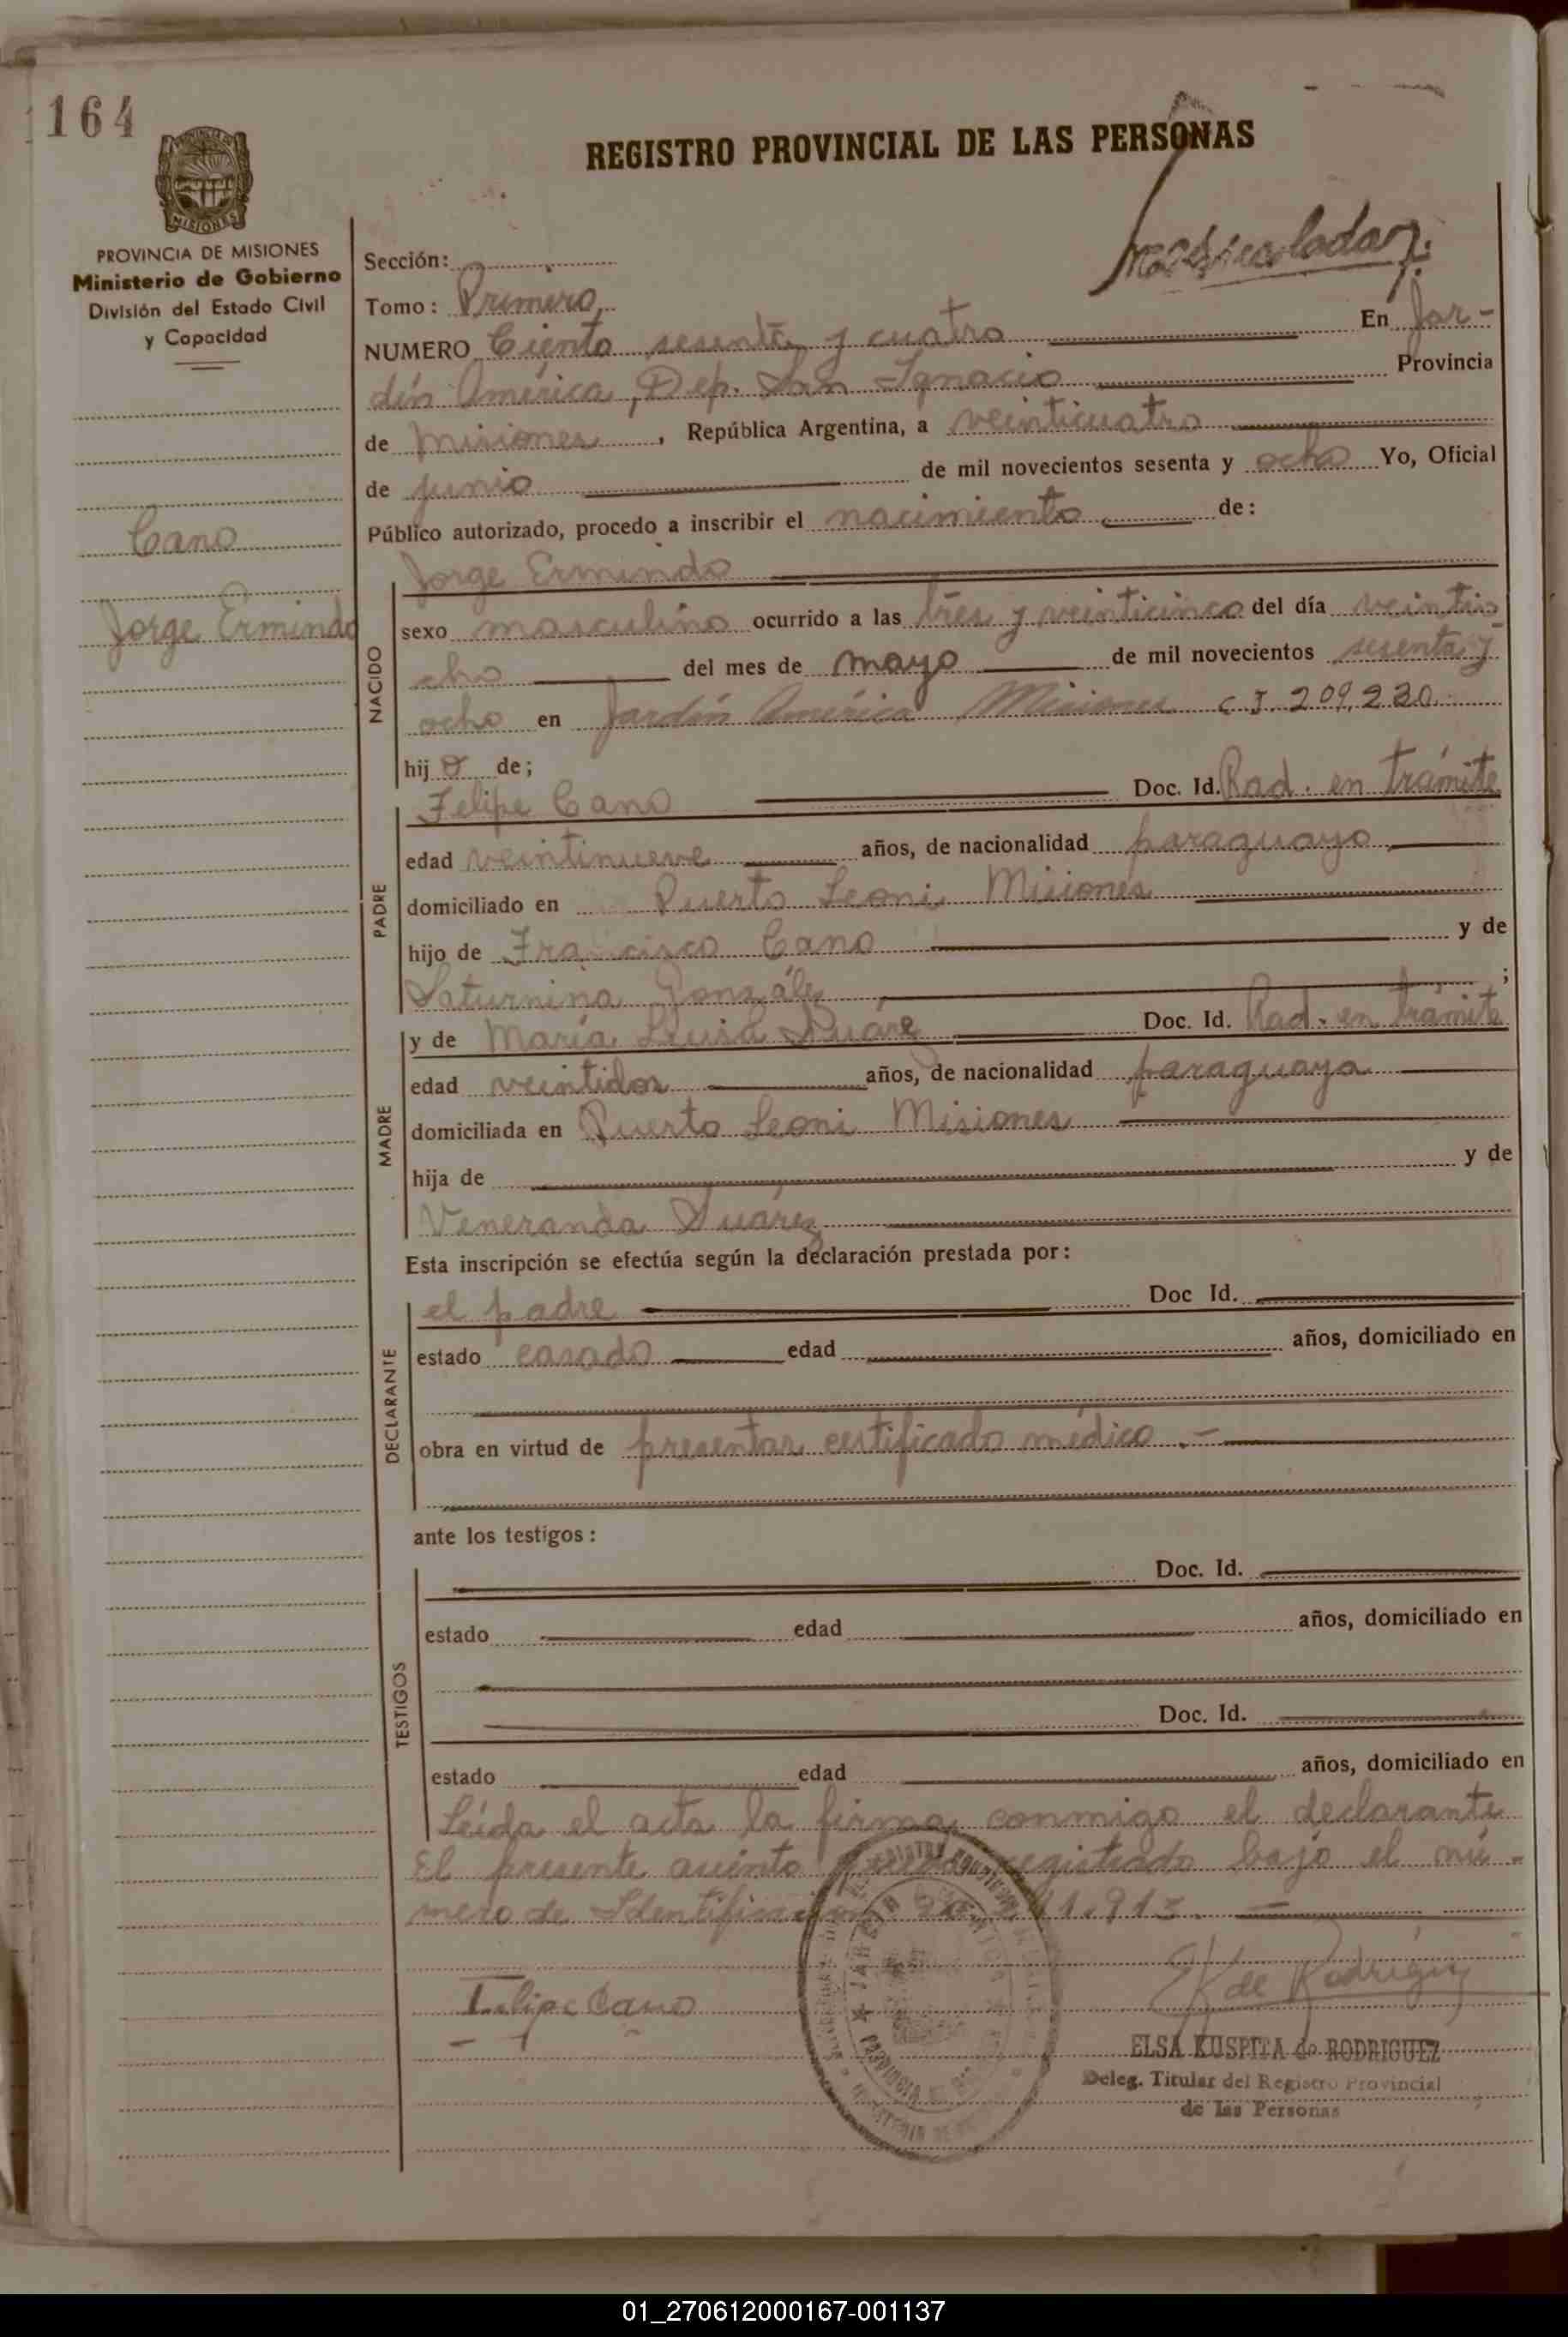 164
REGISTRO PROVINCIAL DE LAS PERSONAS
PROVINCIA DE MISIONES
Ministerio de Gobierno
División del Estado Civil
y Capacidad
Cano
Jorge Ermindo
Sección:
Tomo: Primero
NUMERO Ciento sesenta y cuatro En Jar-
dín América, Dep. San Ignacio Provincia
de Misiones, República Argentina, a veinticuatro
de junio de mil novecientos sesenta y ocho Yo, Oficial
Público autorizado, procedo a inscribir el nacimiento de:
Jorge Ermindo
NACIDO
sexo masculino ocurrido a las tres y veinticinco del día veintio
cho del mes de mayo de mil novecientos sesenta y
ocho en Jardín América Misiones C I 209,230
hijo de;
Felipe Cano Doc. Id. Rad. en trámite
PADRE
edad veintinueve años, de nacionalidad paraguayo
domiciliado en Puerto Leoni Misiones
hijo de Francisco Cano y de
Saturnina González;
y de María Luisa Suárez Doc. Id. Rad. en trámite
MADRE
edad veintidos años, de nacionalidad paraguaya
domiciliada en Puerto Leoni Misiones
hija de y de
Veneranda Suárez
Esta inscripción se efectúa según la declaración prestada por:
DECLARANTE
el padre Doc Id.
estado casado edad años, domiciliado en
obra en virtud de presentar certificado médico.-
ante los testigos:
TESTIGOS
Doc. Id.
estado edad años, domiciliado en
Doc. Id.
estado edad años, domiciliado en
Leída el acta la firma conmigo el declarante
El presente asiento registrado bajo el nú-
mero de Identificación
Felipe Cano
EK de Rodriguez
ELSA KUSPITA de RODRIGUEZ
Deleg. Titular del Registro Provincial
de las Personas
01_270612000167-001137